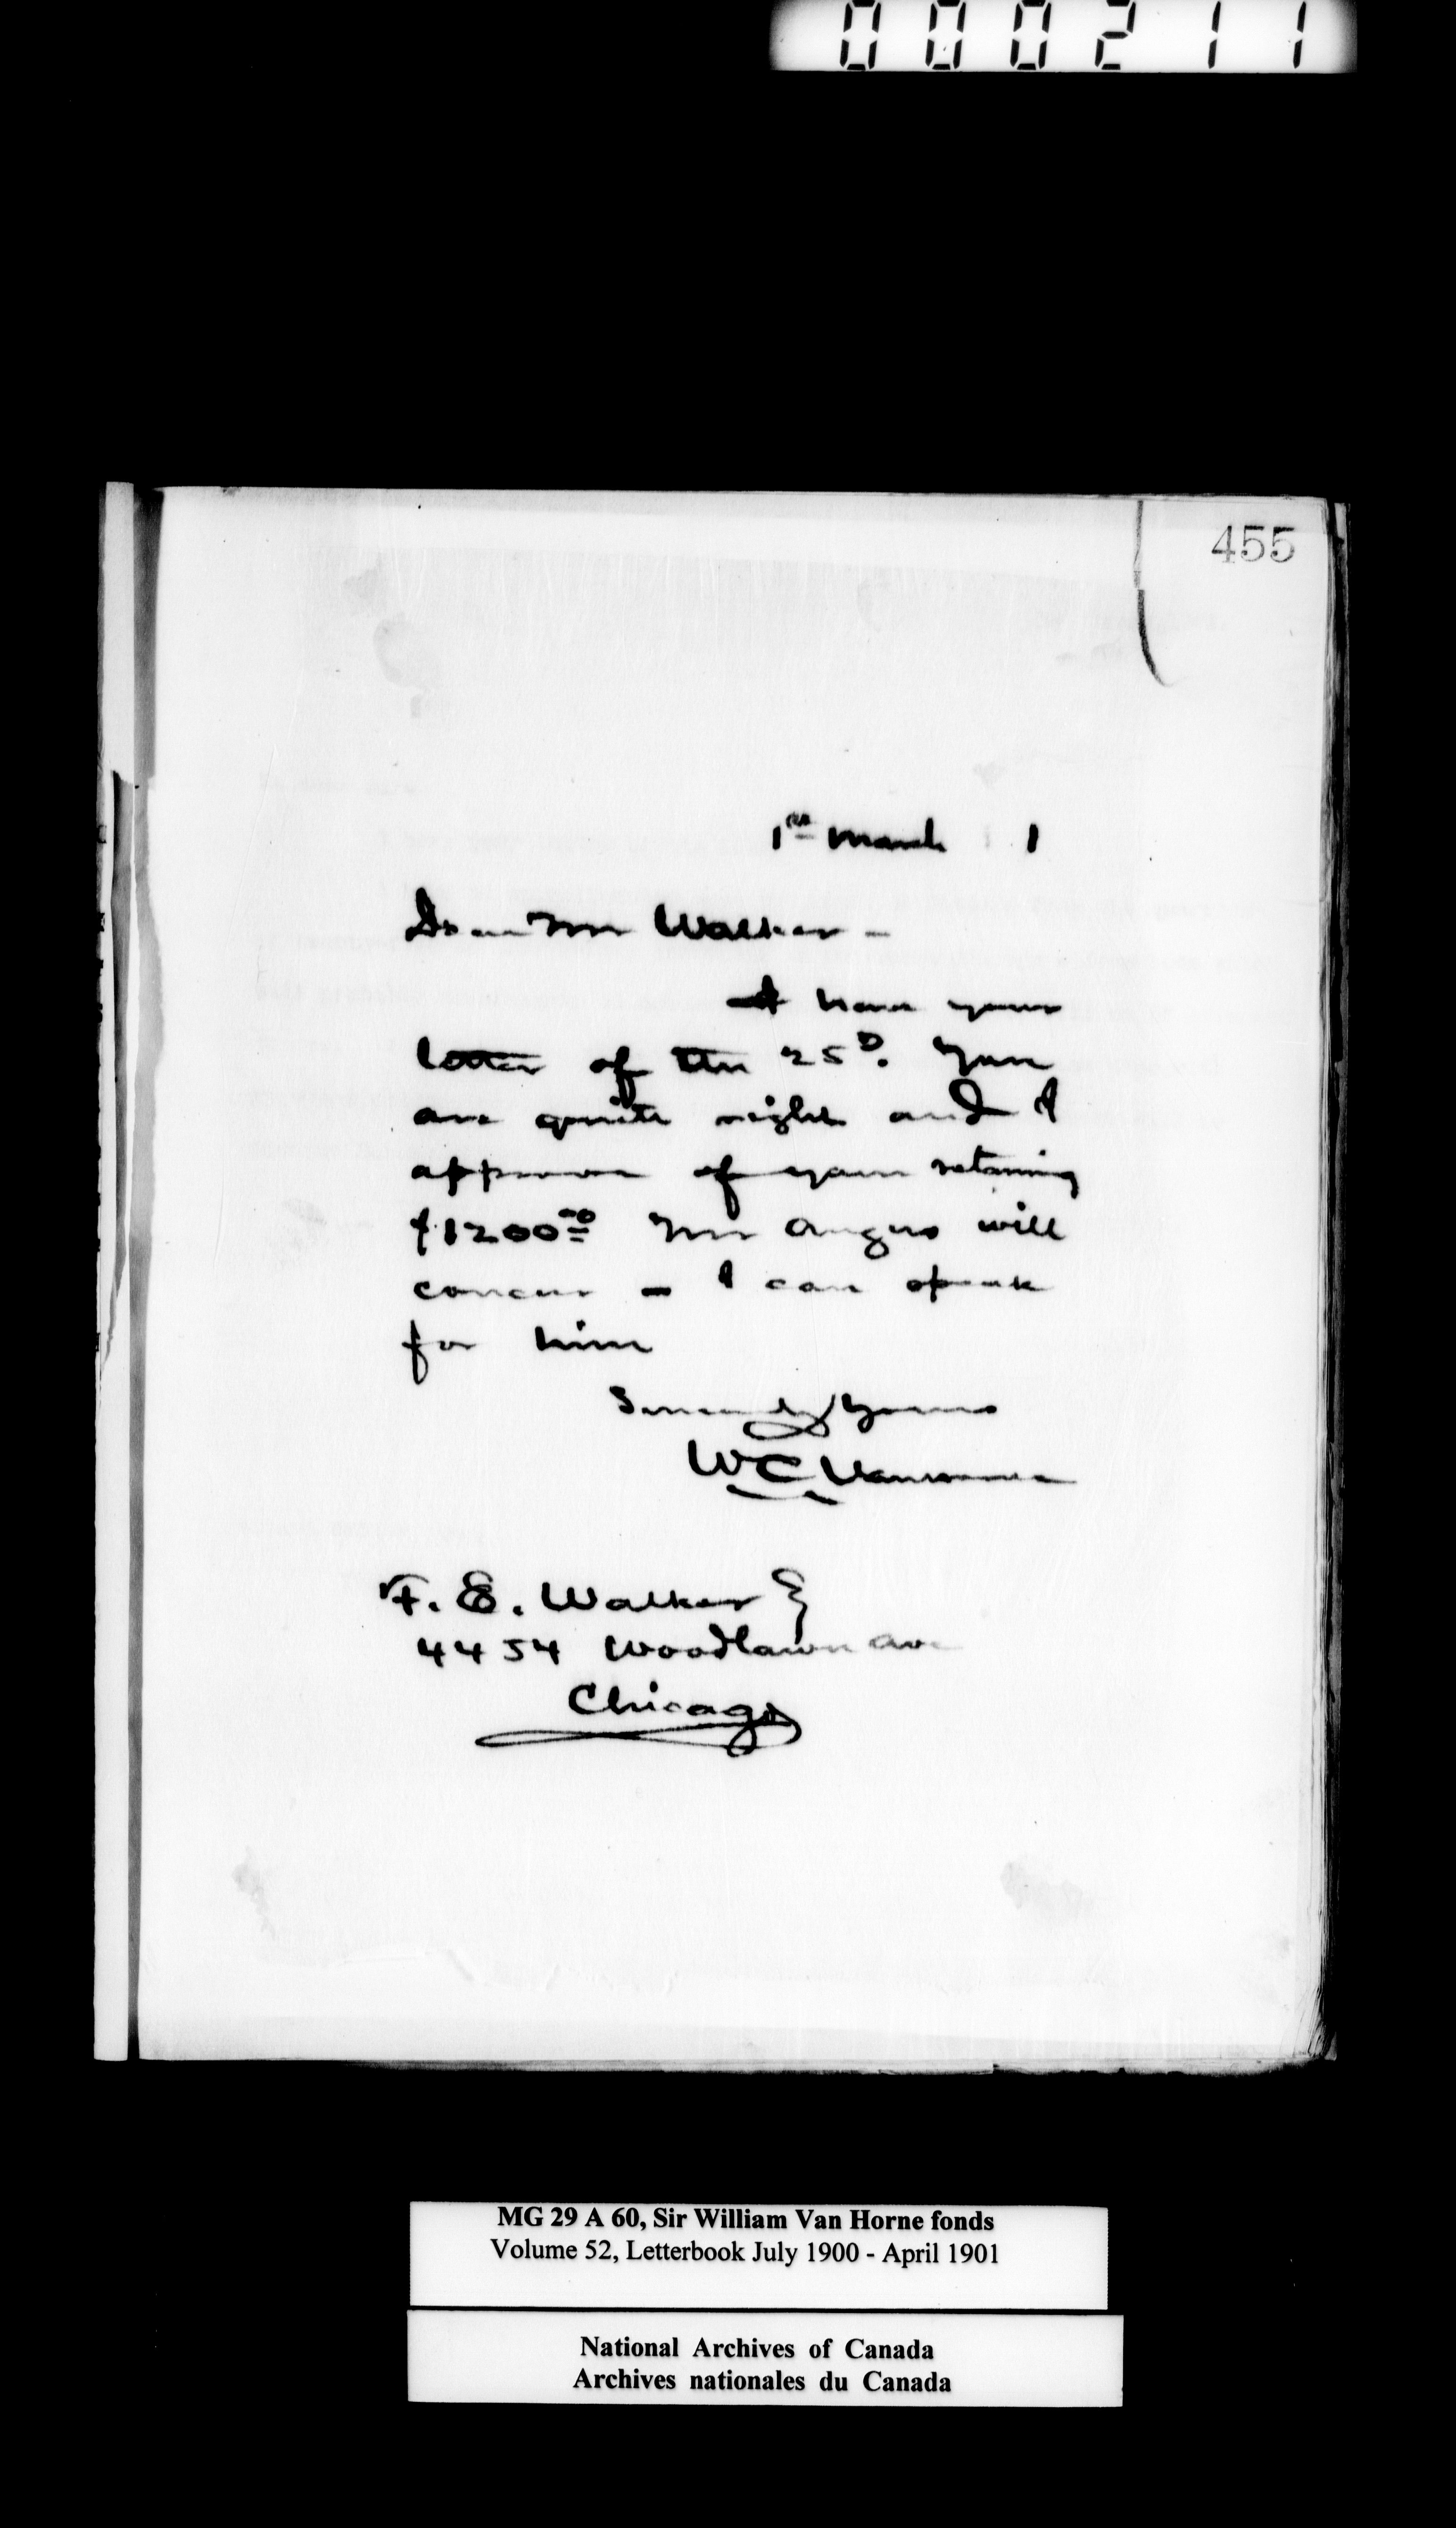 000211
455
1st March 1
Dear Mr Walker -
I have your
letter of the 25th. You
are quite right and I
approve of your retaining
$1200.00 Mr Angus will
concur - I can speak
for him
Sincerely Yours
WC Van Horne
F. E. Walker
4454 Woodlawn Ave
Chicago
MG 29 A 60, Sir William Van Horne fonds
Volume 52, Letterbook July 1900 - April 1901
National Archives of Canada
Archives nationales du Canada